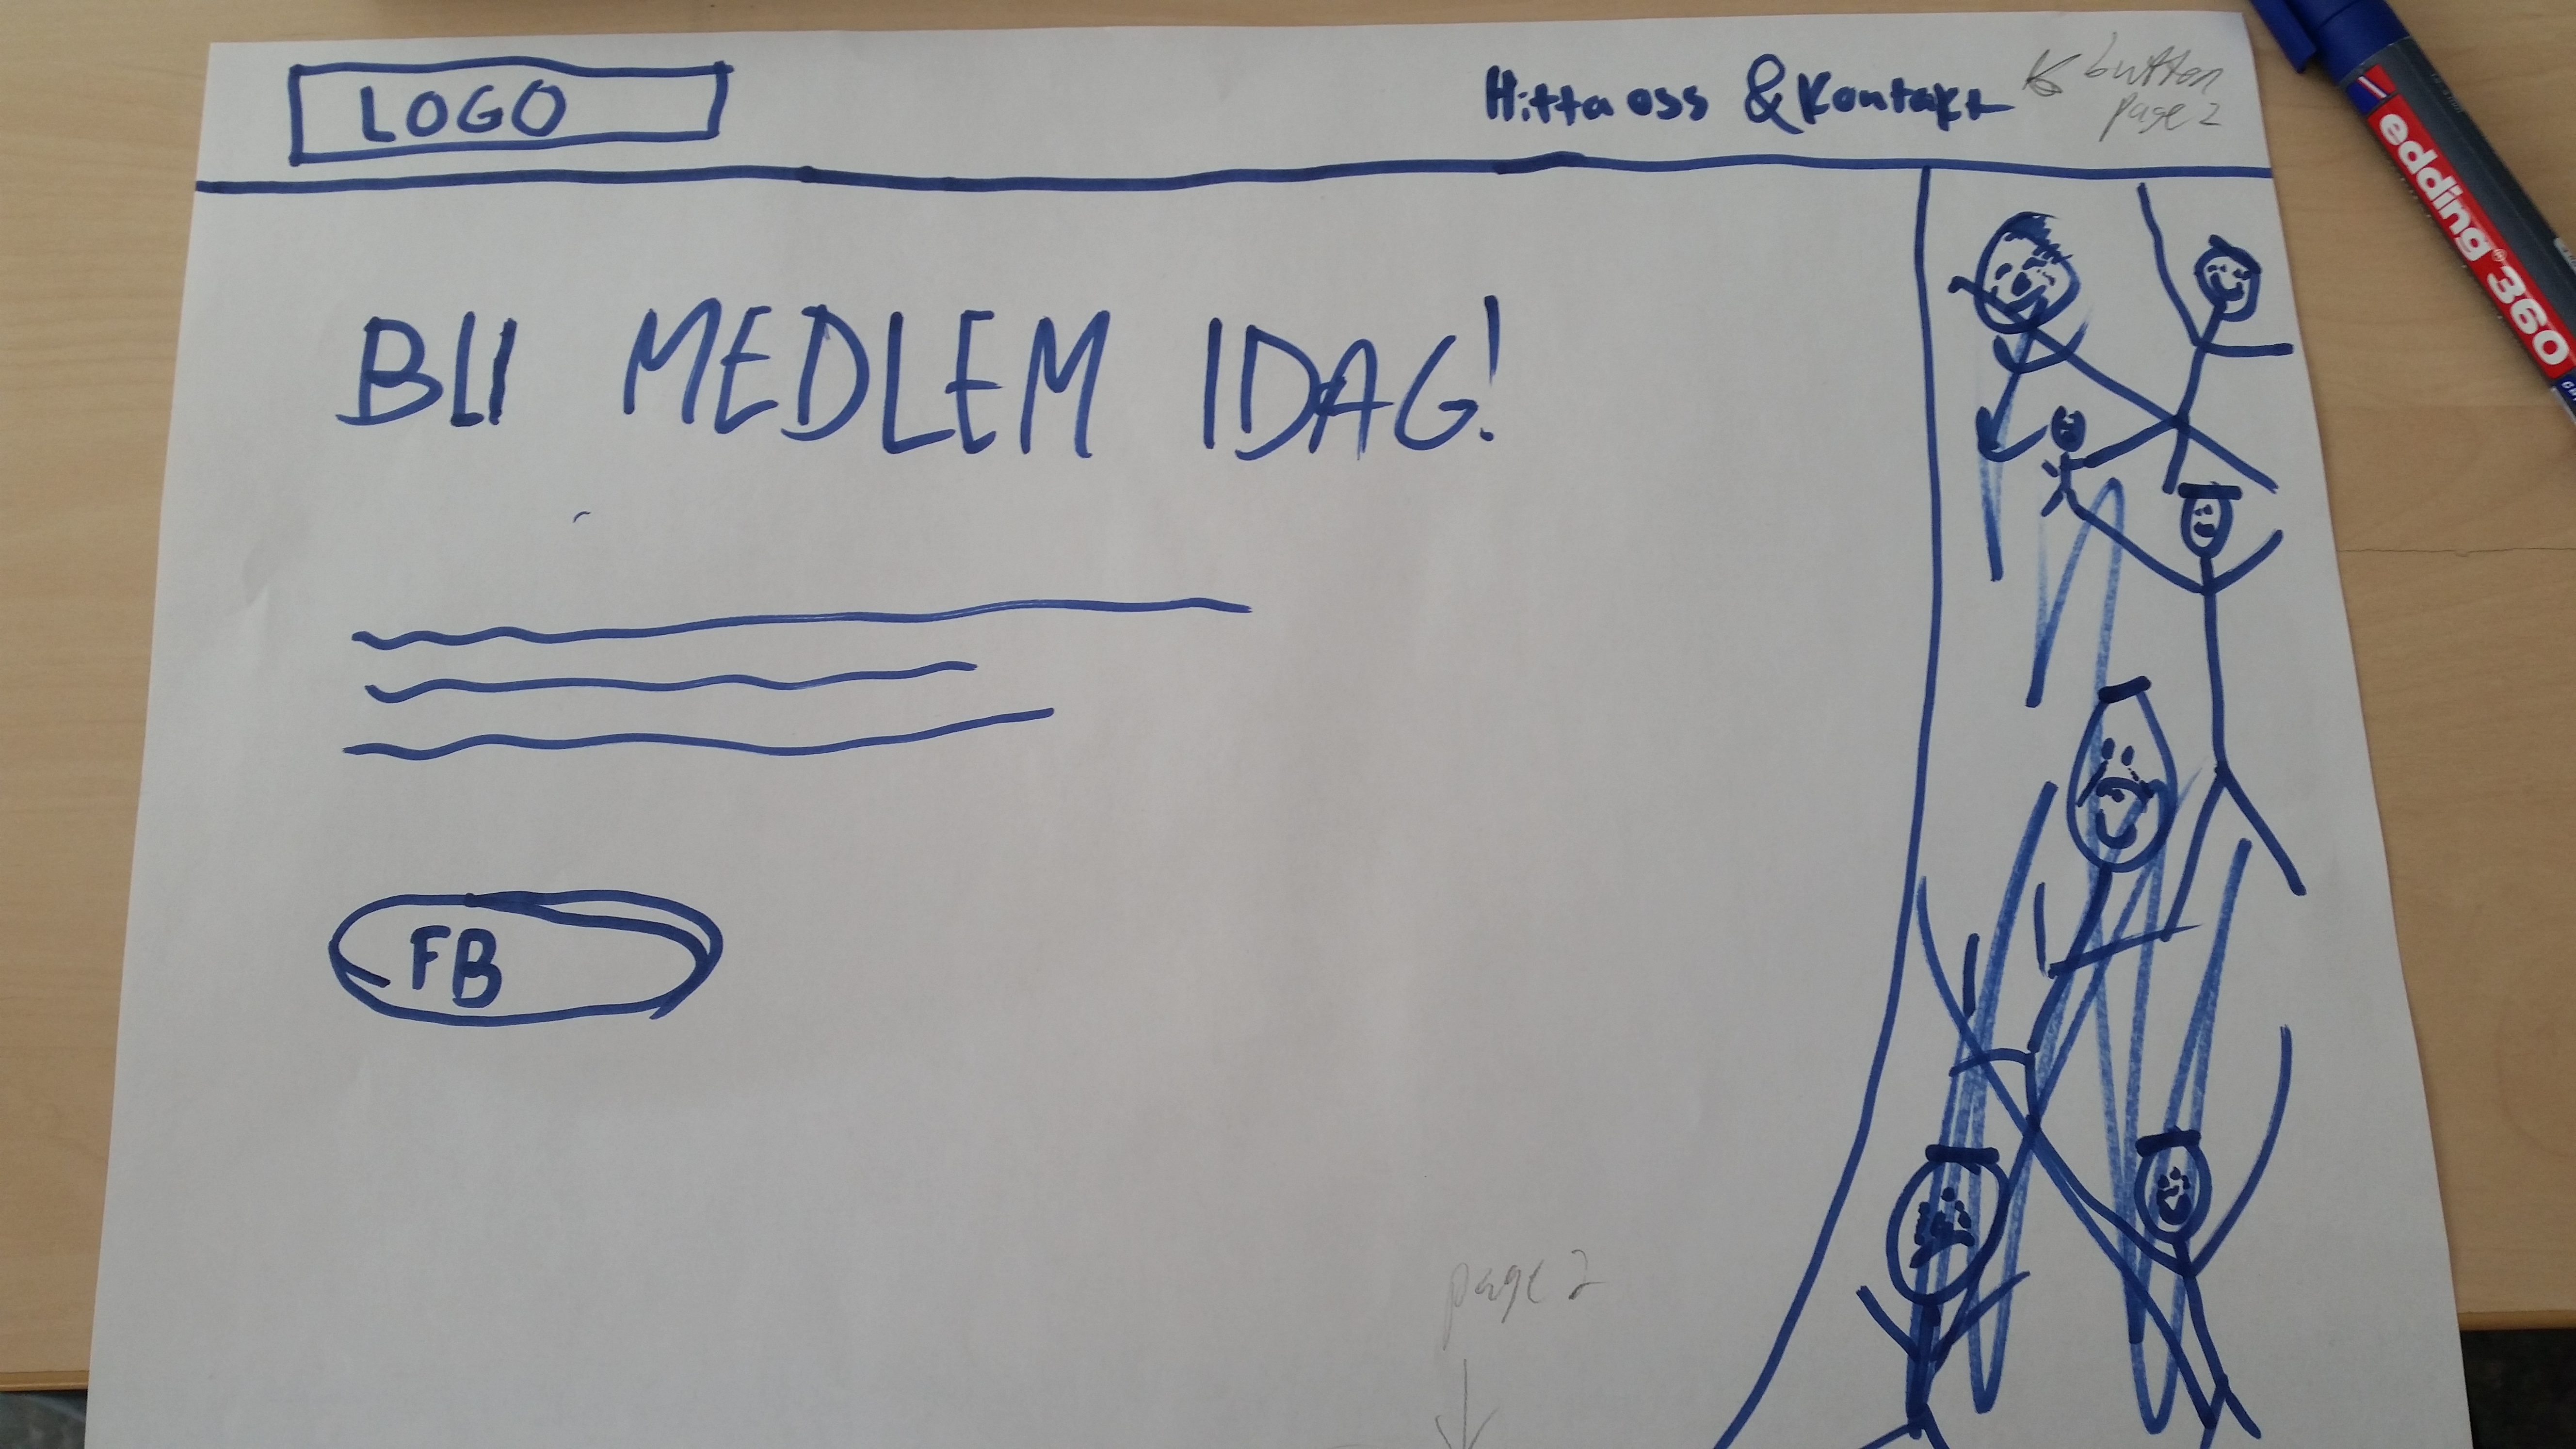 LOGO
Hitta oss & Kontakt
button
page 2
BLI MEDLEM IDAG!
FB
page 2
edding 360